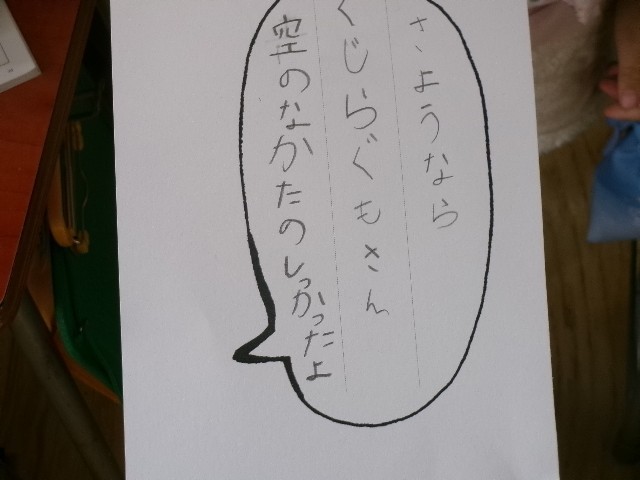 さようなら
くじらぐもさん
空のなかたのしっかったよ